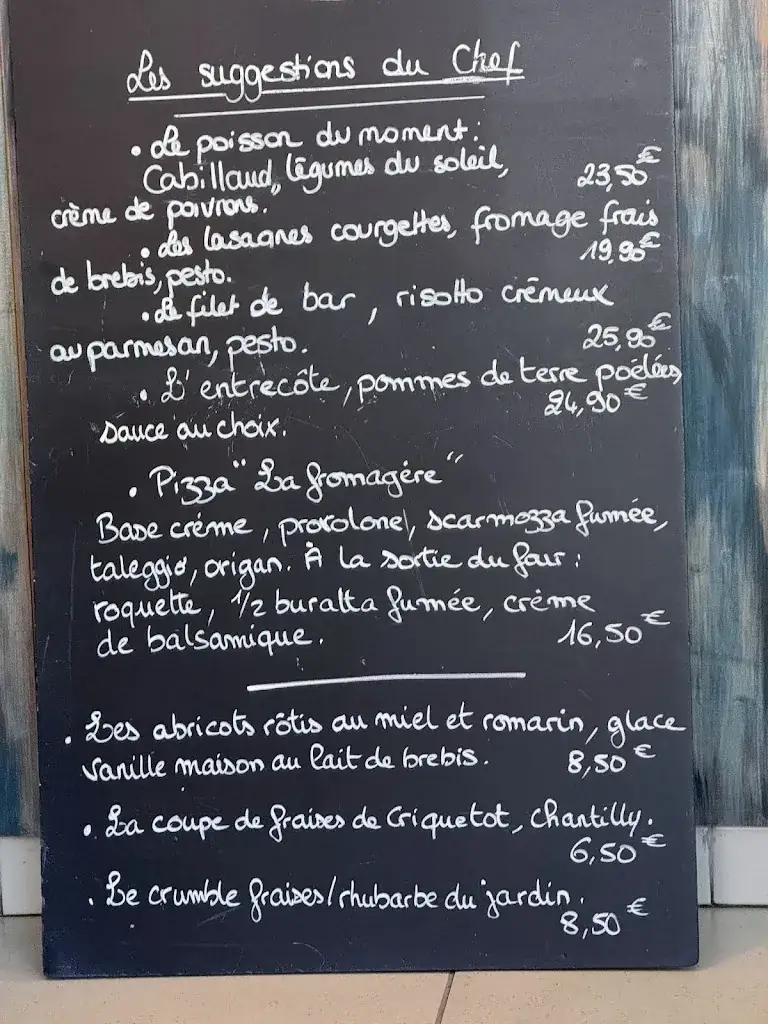 Les suggestions du Chef
• Le poisson du moment:
Cabillaud, légumes du soleil,
crème de poivrons. 23,50€
• Les lasagnes courgettes, fromage frais
de brebis, pesto. 19,90€
• Le filet de bar, risotto crémeux
au parmesan, pesto. 25,90€
• L'entrecôte, pommes de terre poêlées,
sauce au choix. 24,90€
• Pizza "La fromagére"
Base créme, provolone, scarmozza fumée,
taleggio, origan. À la sortie du four:
roquette, 1/2 buratta fumée, crème
de balsamique. 16,50€
• Les abricots rôtis au miel et romarin, glace
vanille maison au lait de brebis. 8,50€
• La coupe de fraises de Criquetot, chantilly.
6,50€
• Le crumble fraises/rhubarbe du jardin.
8,50€